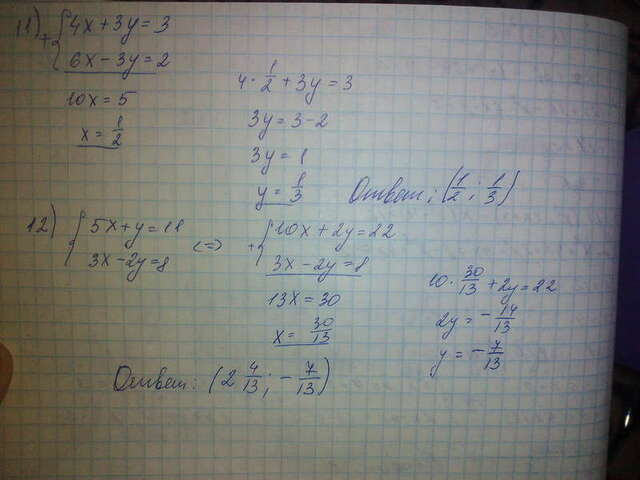 11) + { 4x + 3y = 3
6x - 3y = 2
10x = 5
x = 1/2
4 · 1/2 + 3y = 3
3y = 3 - 2
3y = 1
y = 1/3
Ответ: (1/2; 1/3)
12) { 5x + y = 11
3x - 2y = 8
<=> + { 10x + 2y = 22
3x - 2y = 8
13x = 30
x = 30/13
10 · 30/13 + 2y = 22
2y = - 14/13
y = - 7/13
Ответ: (2 4/13; - 7/13)